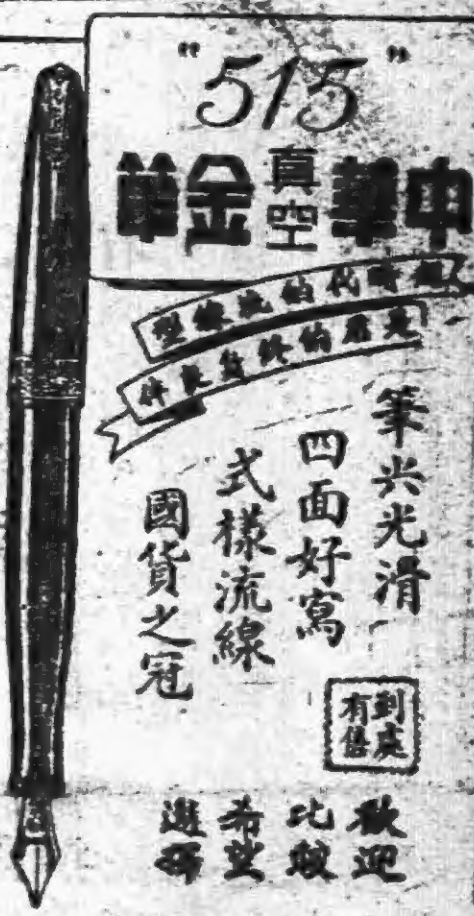 "515"
中華真空金筆
超時代的流線型
筆尖光滑
四面好寫
式樣流線
國貨之冠
到處
有售
歡迎
比較
希望
選擇